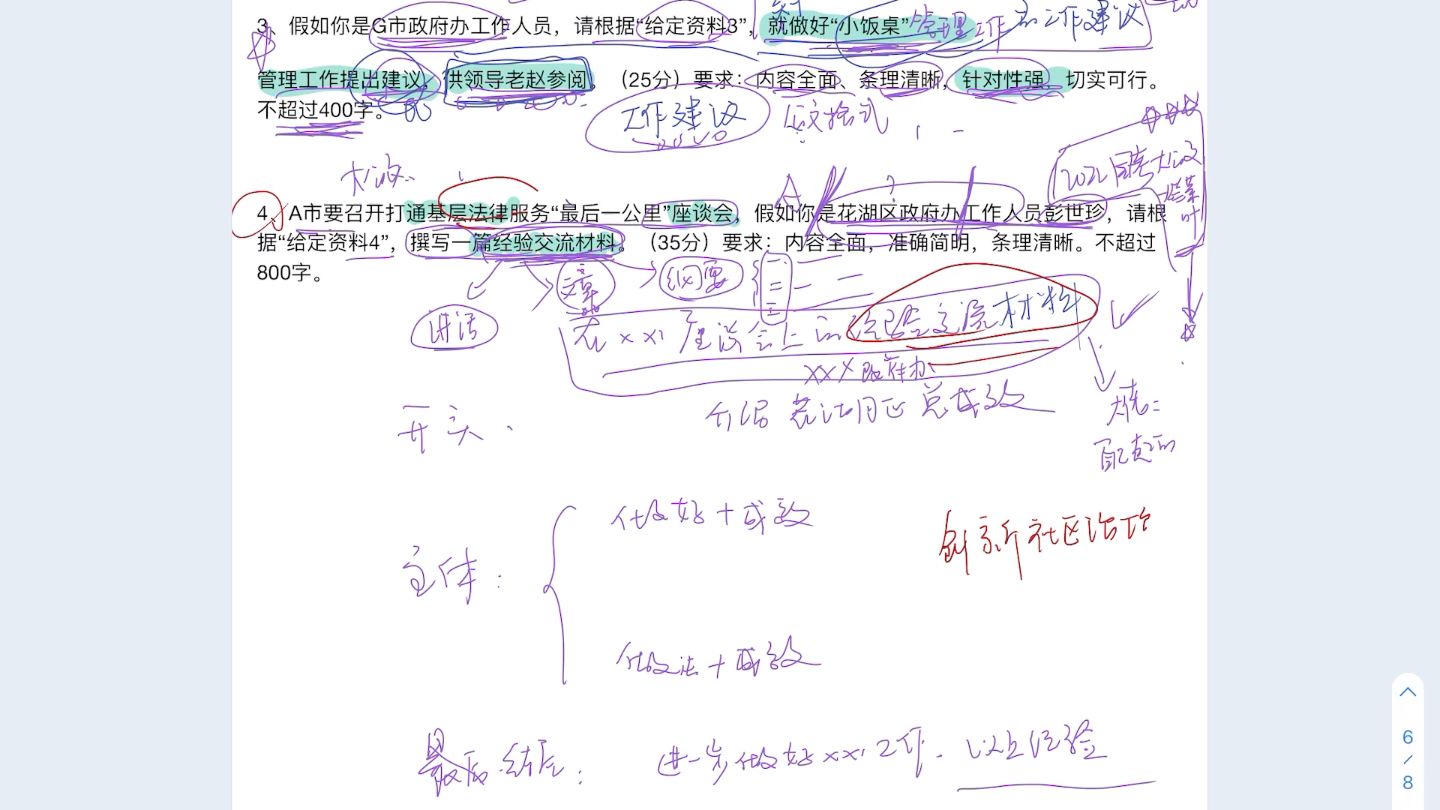 3、假如你是G市政府办工作人员，请根据“给定资料3”，就做好“小饭桌”
管理工作
工作建议
管理工作提出建议，供领导老赵参阅。（25分）要求：内容全面、条理清晰，针对性强，切实可行。
不超过400字。
工作建议
4、A市要召开打通基层法律服务“最后一公里”座谈会，假如你是花湖区政府办工作人员彭世珍，请根
据“给定资料4”，撰写一篇经验交流材料。（35分）要求：内容全面，准确简明，条理清晰。不超过
800字。
文章
纲要
讲话
在××座谈会上的经验交流材料
×××政府办
开头、
做好+成效
创新社区治理
主体：
做法+成效
最后结尾：
进一步做好××工作.以上经验
6
/
8